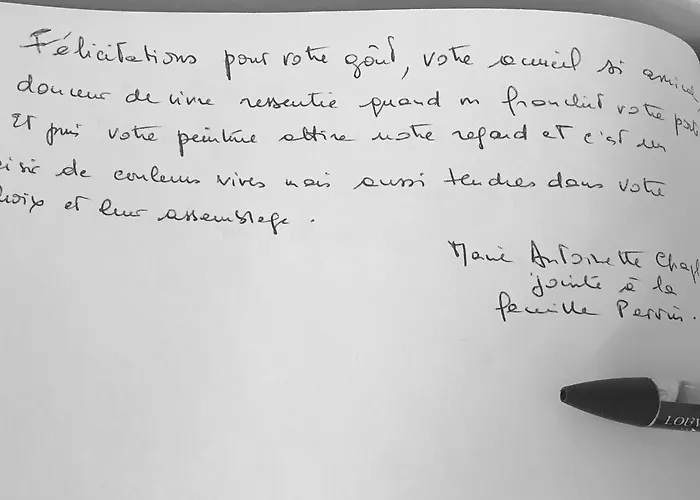 Félicitations pour votre goût, votre accueil si amical,
douceur de vivre ressentie quand on franchit votre
Et puis votre peinture attire notre regard et c'est un
de couleurs vives mais aussi tendres dans votre
choix et leur assemblage.
Marie Antoinette
jointe à la
famille Perrin.
LOUV